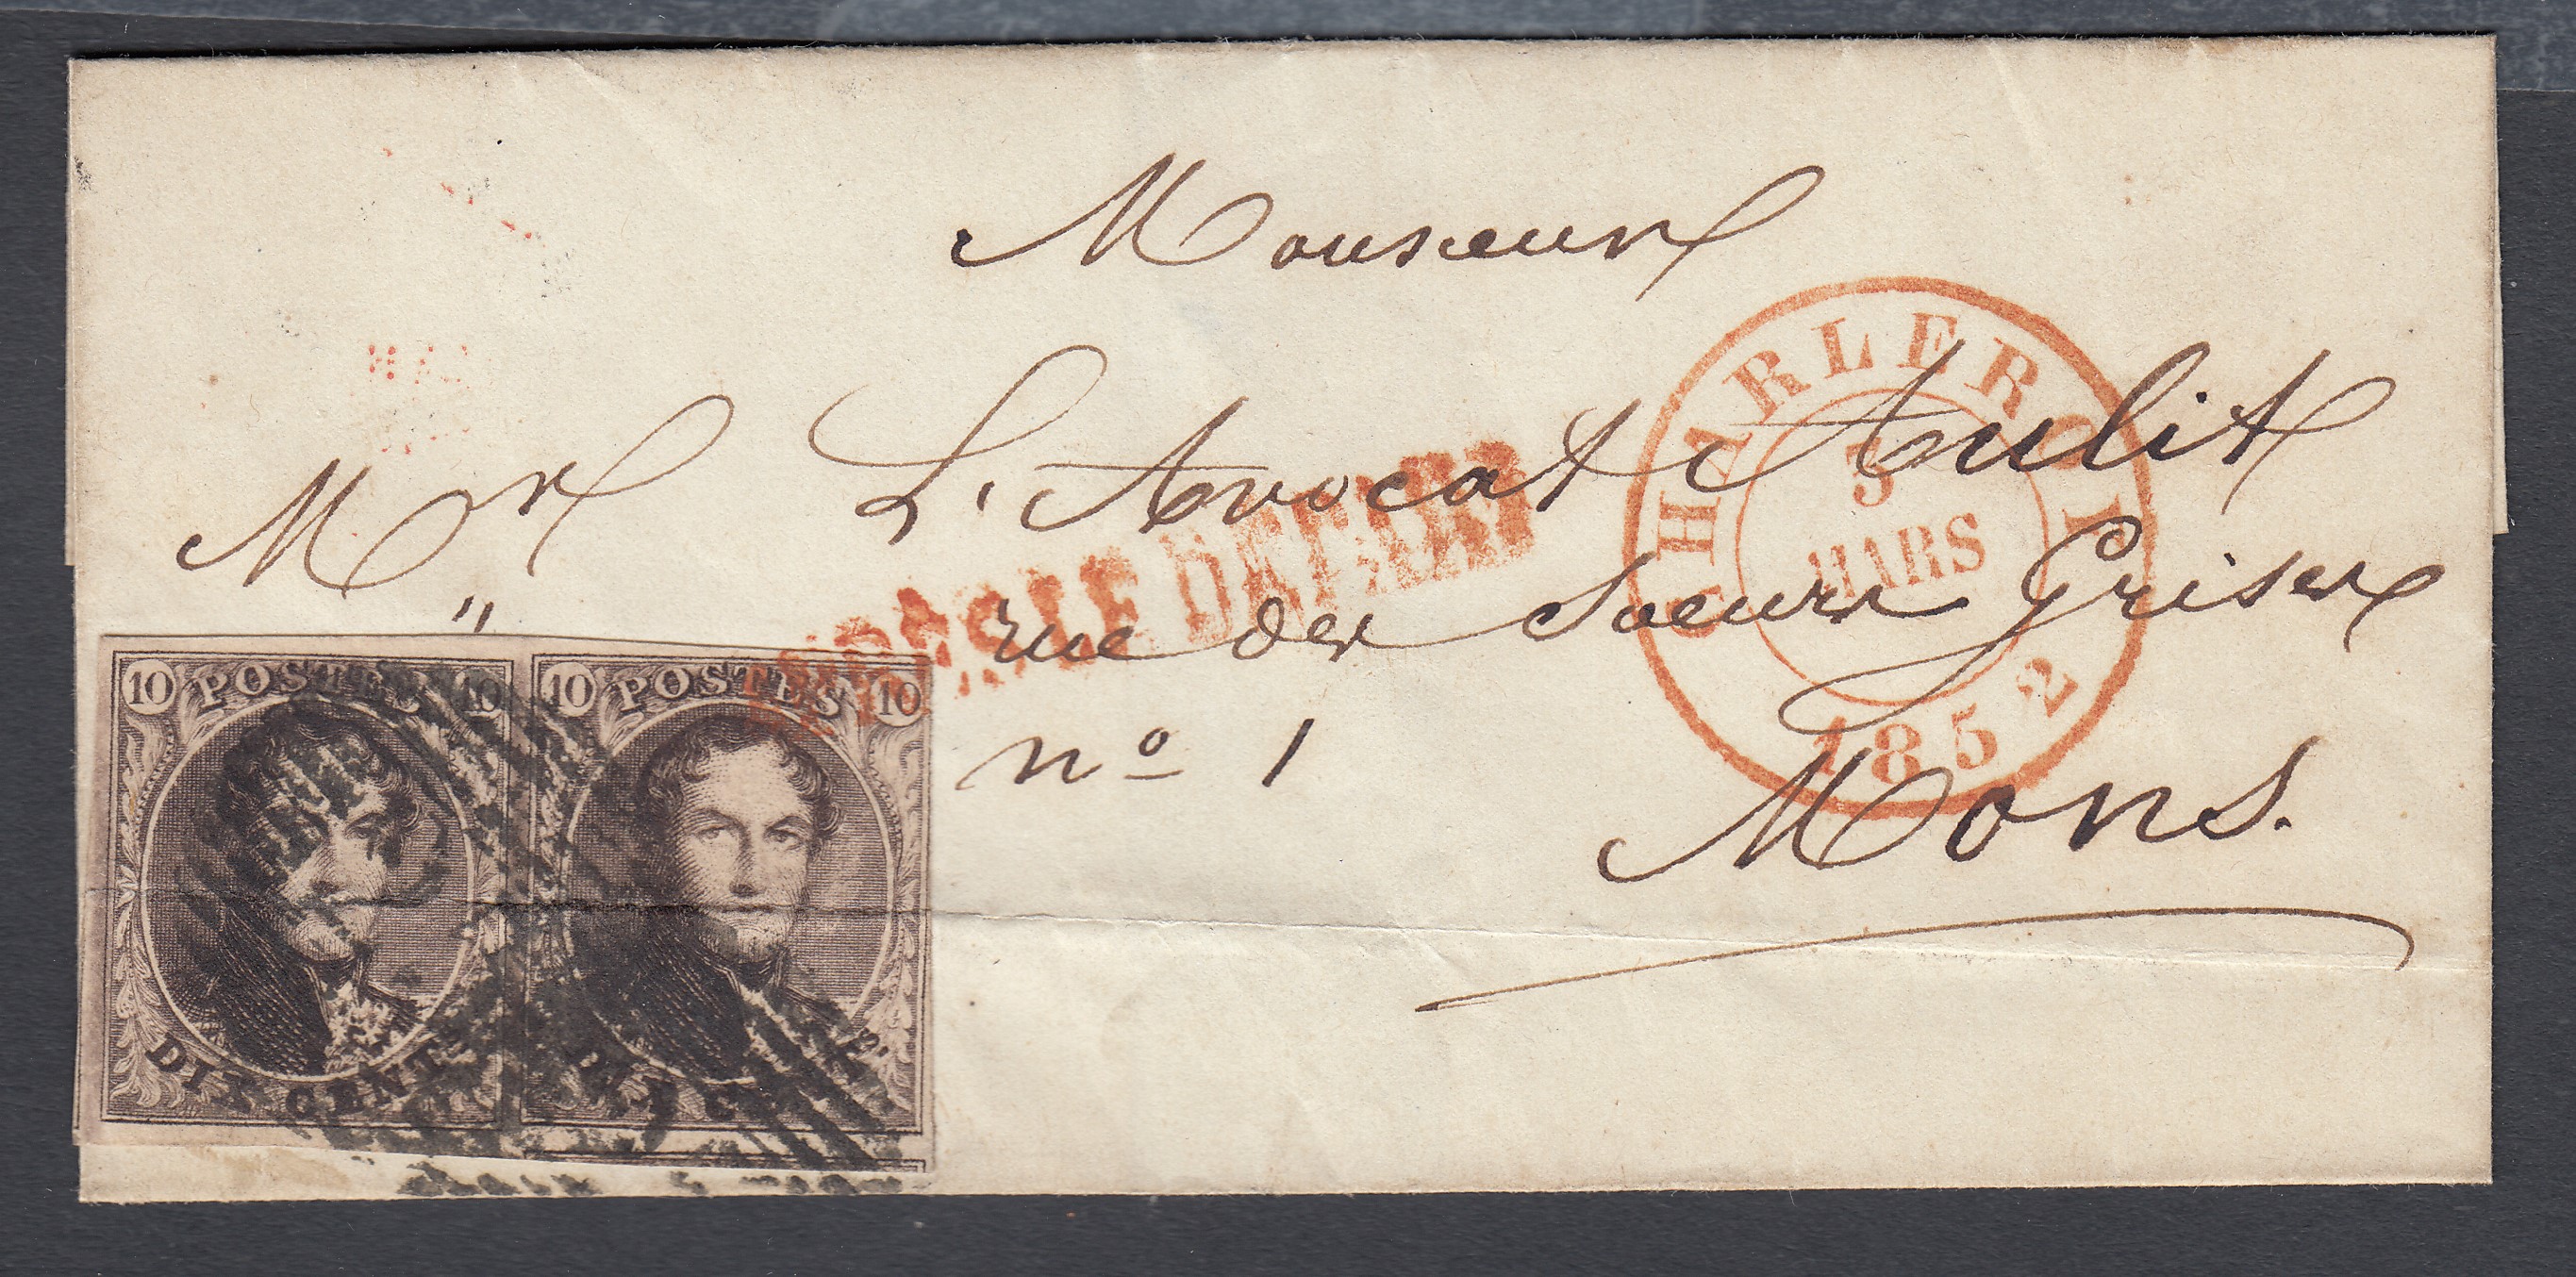 Monsieur
Mr L'Avocat Aulit
"
rue des Soeurs Grises
no 1
Mons.
CHARLEROI
3
MARS
1852
APRES LE DEPART
10 POSTES 10
DIX CENTS
10 POSTES 10
DIX CENTS